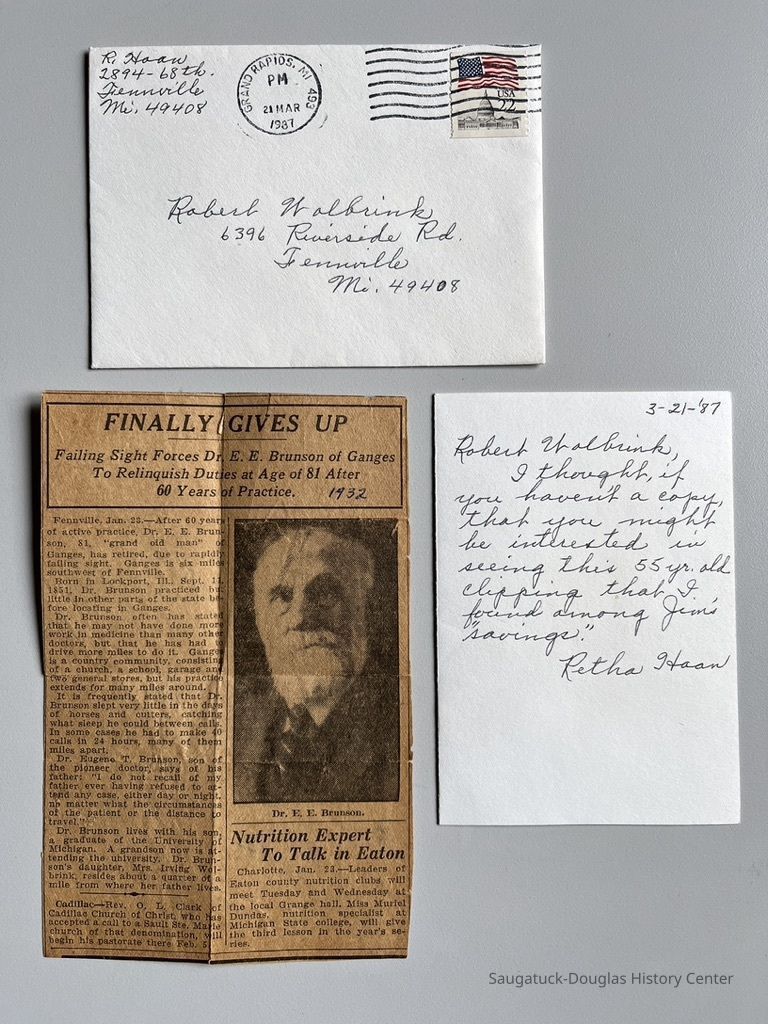 R. Haan
2894-68th.
Fennville
Mi. 49408
GRAND RAPIDS, MI 493
PM
21 MAR
1987
USA
22
Robert Wolbrink
6396 Riverside Rd.
Fennville
Mi. 49408
FINALLY GIVES UP
Failing Sight Forces Dr. E. E. Brunson of Ganges
To Relinquish Duties at Age of 81 After
60 Years of Practice. 1932
Fennville, Jan. 23.—After 60 years
of active practice, Dr. E. E. Brun-
son, 81, "grand old man" of
Ganges, has retired, due to rapidly
failing sight. Ganges is six miles
southwest of Fennville.
Born in Lockport, Ill., Sept. 11,
1851, Dr. Brunson practiced but
little in other parts of the state be-
fore locating in Ganges.
Dr. Brunson often has stated
that he may not have done more
work in medicine than many other
doctors, but that he has had to
drive more miles to do it. Ganges
is a country community, consisting
of a church, a school, garage and
two general stores, but his practice
extends for many miles around.
It is frequently stated that Dr.
Brunson slept very little in the days
of horses and cutters, catching
what sleep he could between calls.
In some cases he had to make 40
calls in 24 hours, many of them
miles apart.
Dr. Eugene T. Brunson, son of
the pioneer doctor, says of his
father: "I do not recall of my
father ever having refused to at-
tend any case, either day or night,
no matter what the circumstances
of the patient or the distance to
travel."
Dr. Brunson lives with his son,
a graduate of the University of
Michigan. A grandson now is at-
tending the university. Dr. Brun-
son's daughter, Mrs. Irving Wol-
brink, resides about a quarter of a
mile from where her father lives.
Cadillac—Rev. O. L. Clark of
Cadillac Church of Christ, who has
accepted a call to a Sault Ste. Marie
church of that denomination, will
begin his pastorate there Feb. 5.
Dr. E. E. Brunson.
Nutrition Expert
To Talk in Eaton
Charlotte, Jan. 23.—Leaders of
Eaton county nutrition clubs will
meet Tuesday and Wednesday at
the local Grange hall. Miss Muriel
Dundas, nutrition specialist at
Michigan State college, will give
the third lesson in the year's se-
ries.
3-21-'87
Robert Wolbrink,
I thought, if
you havent a copy,
that you might
be interested in
seeing this 55 yr. old
clipping that I
found among Jim's
"savings."
Retha Haan
Saugatuck-Douglas History Center